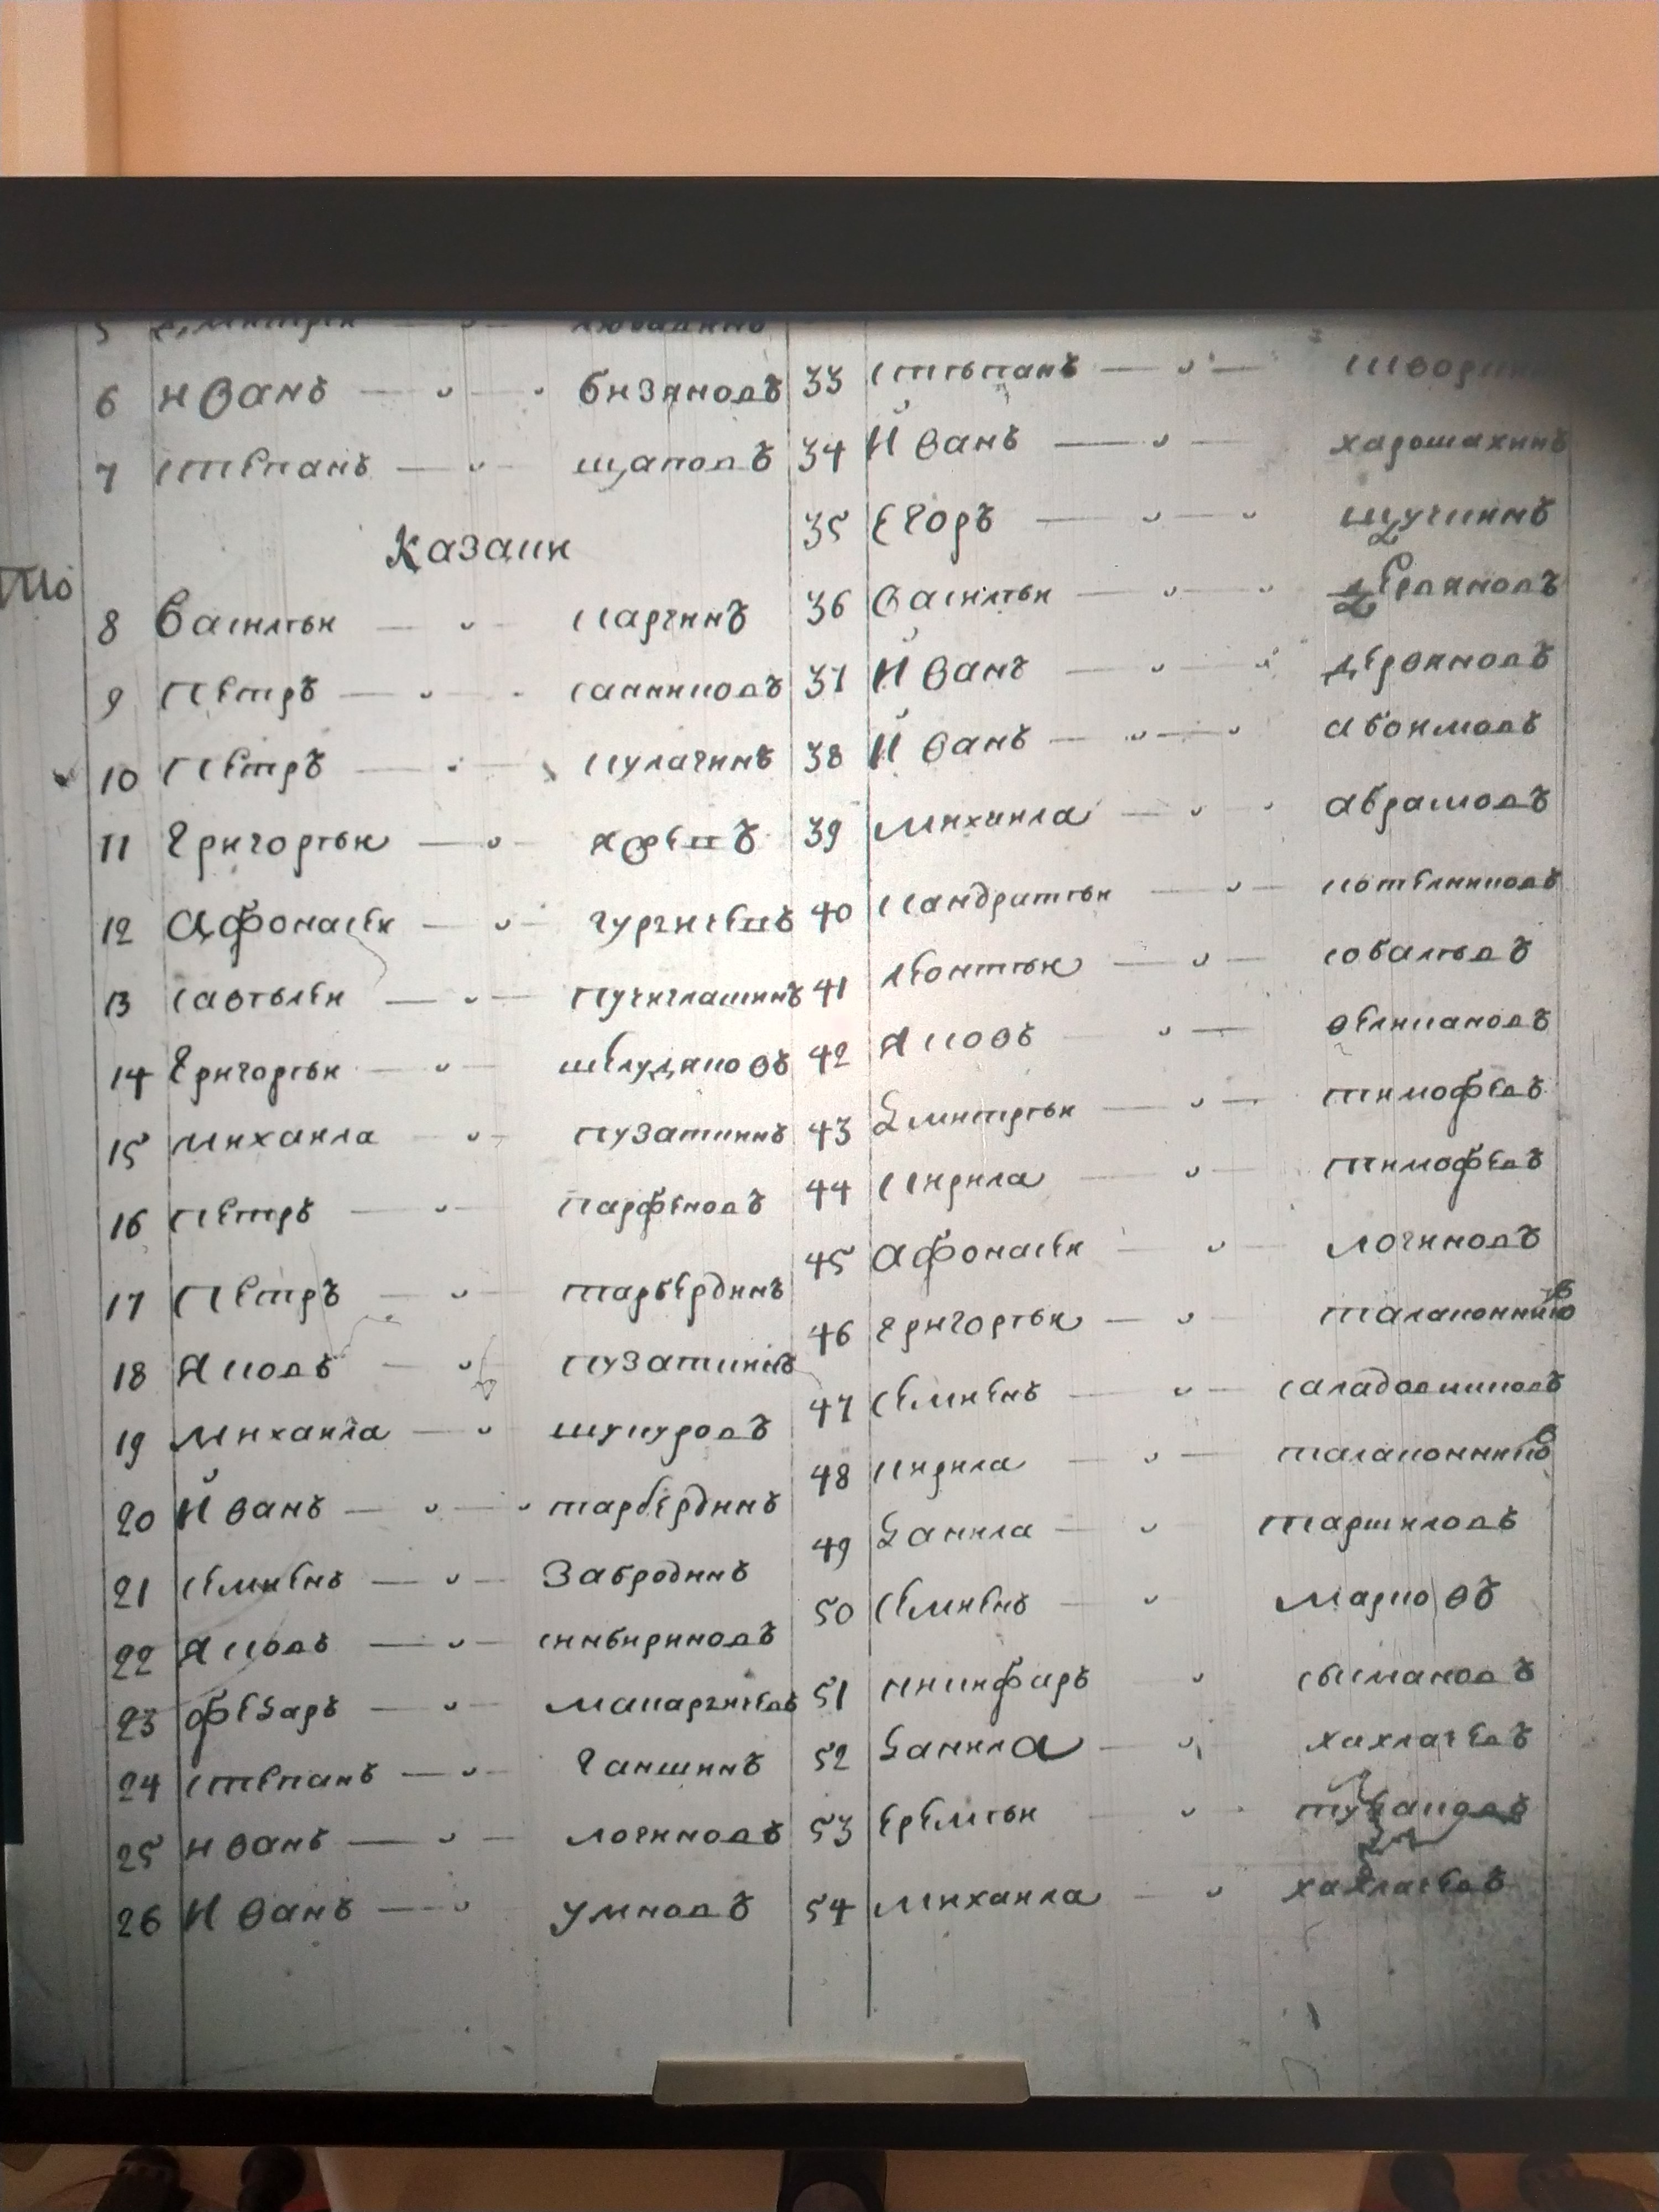 6 Иванъ — „ — бизяновъ
7 Степанъ — „ — щаповъ
Казаки
8 Василеи — „ — каргинъ
9 Петръ — „ — санниковъ
10 Петръ — „ — кулагинъ
11 Григореи — „ —
12 Афонасеи — „ —
13 савелеи — „ —
14 Григореи — „ — шелудяковъ
15 михаила — „ — пузаткинъ
16 Петръ — „ — парфеновъ
17 Петръ — „ — тарбердинъ
18 Яковъ — „ — пузаткинъ
19 михаила — „ — шукуровъ
20 Иванъ — „ — тарбердинъ
21 семиенъ — „ — Забродинъ
22 Яковъ — „ — синбириновъ
23 — „ —
24 степанъ — „ — Ганшинъ
25 иванъ — „ — логиновъ
26 Иванъ — „ — умновъ
33 степанъ — „ —
34 Иванъ — „ — харошахинъ
35 Егоръ — „ — щучкинъ
36 Василеи — „ —
37 Иванъ — „ — дервяновъ
38 Иванъ — „ —
39 михаила — „ — абрамовъ
40 кандратеи — „ — котелниковъ
41 леонтеи — „ — собалевъ
42 Яковъ — „ — великановъ
43 Дмитреи — „ — тимофевъ
44 кирила — „ — тимофевъ
45 афонасеи — „ — логиновъ
46 григореи — „ — талаконкинъ
47 семиенъ — „ — саладовниковъ
48 кирила — „ —
49 Данила — „ — таршиловъ
50 семиенъ — „ — марковъ
51 никифаръ — „ —
52 Данила — „ — хахлачевъ
53 еремеи — „ —
54 михаила — „ — хахлачевъ